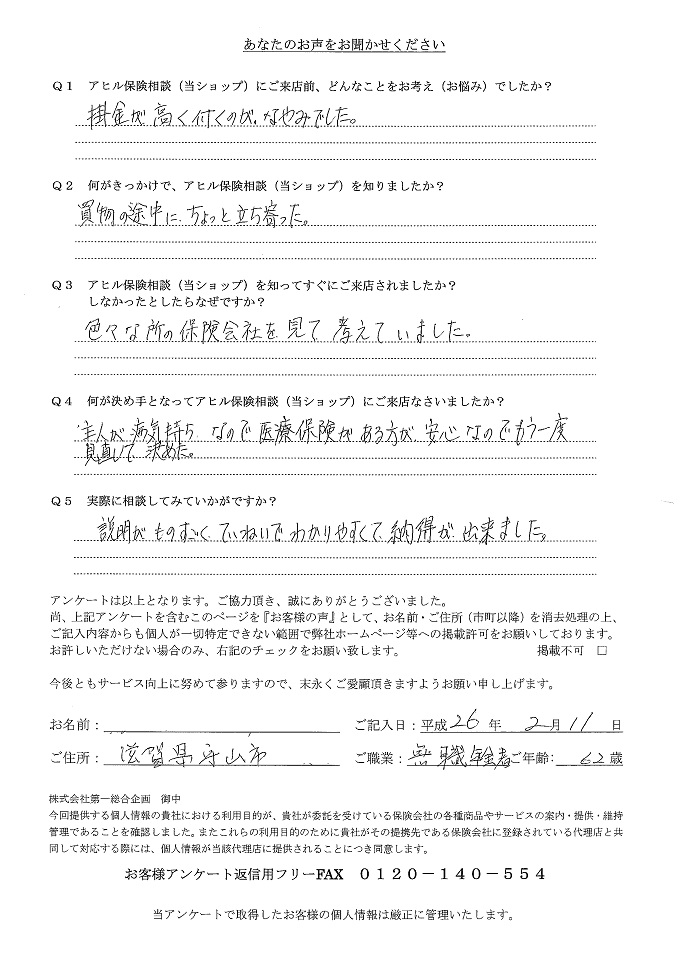 あなたのお声をお聞かせください
Q1 アヒル保険相談（当ショップ）にご来店前、どんなことをお考え（お悩み）でしたか？
掛金が高く付くのが、なやみでした。
Q2 何がきっかけで、アヒル保険相談（当ショップ）を知りましたか？
買物の途中に、ちょっと立ち寄った。
Q3 アヒル保険相談（当ショップ）を知ってすぐにご来店されましたか？
しなかったとしたらなぜですか？
色々な所の保険会社を見て考えていました。
Q4 何が決め手となってアヒル保険相談（当ショップ）にご来店なさいましたか？
主人が病気持ちなので医療保険がある方が安心なのでもう一度
見直して決めた。
Q5 実際に相談してみていかがですか？
説明がものすごくていねいでわかりやすくて納得が出来ました。
アンケートは以上となります。ご協力頂き、誠にありがとうございました。
尚、上記アンケートを含むこのページを『お客様の声』として、お名前・ご住所（市町以降）を消去処理の上、
ご記入内容からも個人が一切特定できない範囲で弊社ホームページ等への掲載許可をお願いしております。
お許しいただけない場合のみ、右記のチェックをお願い致します。 掲載不可 □
今後ともサービス向上に努めて参りますので、末永くご愛顧頂きますようお願い申し上げます。
お名前： ご記入日：平成26年 2月11日
ご住所： 滋賀県守山市 ご職業：無職 ご年齢： 62歳
株式会社第一総合企画 御中
今回提供する個人情報の貴社における利用目的が、貴社が委託を受けている保険会社の各種商品やサービスの案内・提供・維持
管理であることを確認しました。またこれらの利用目的のために貴社がその提携先である保険会社に登録されている代理店と共
同して対応する際には、個人情報が当該代理店に提供されることにつき同意します。
お客様アンケート返信用フリーFAX ０１２０－１４０－５５４
当アンケートで取得したお客様の個人情報は厳正に管理いたします。